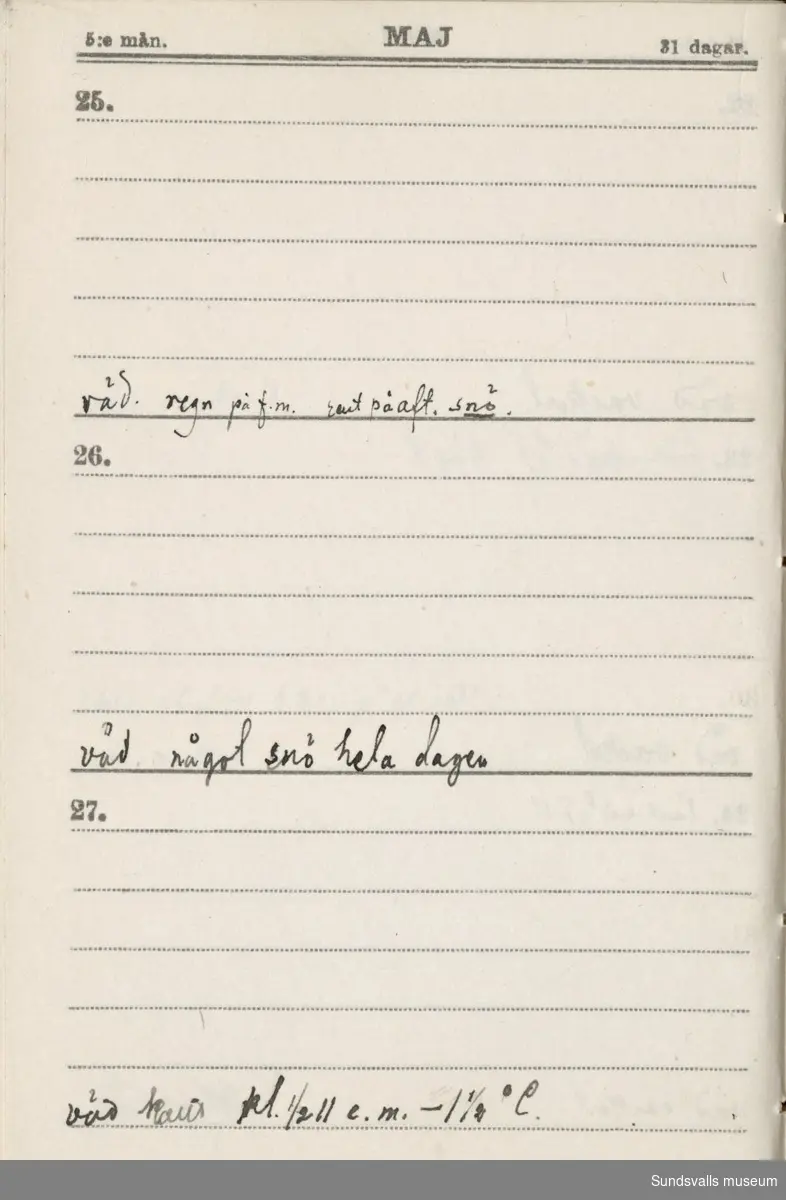 5:e mån. MAJ 31 dagar.
25.
väd. regn på f.m. samt på aft. snö.
26.
väd. något snö hela dagen
27.
väd kl. 1/2 11 e.m. – 1 1/2 ° C.
Sundsvalls museum